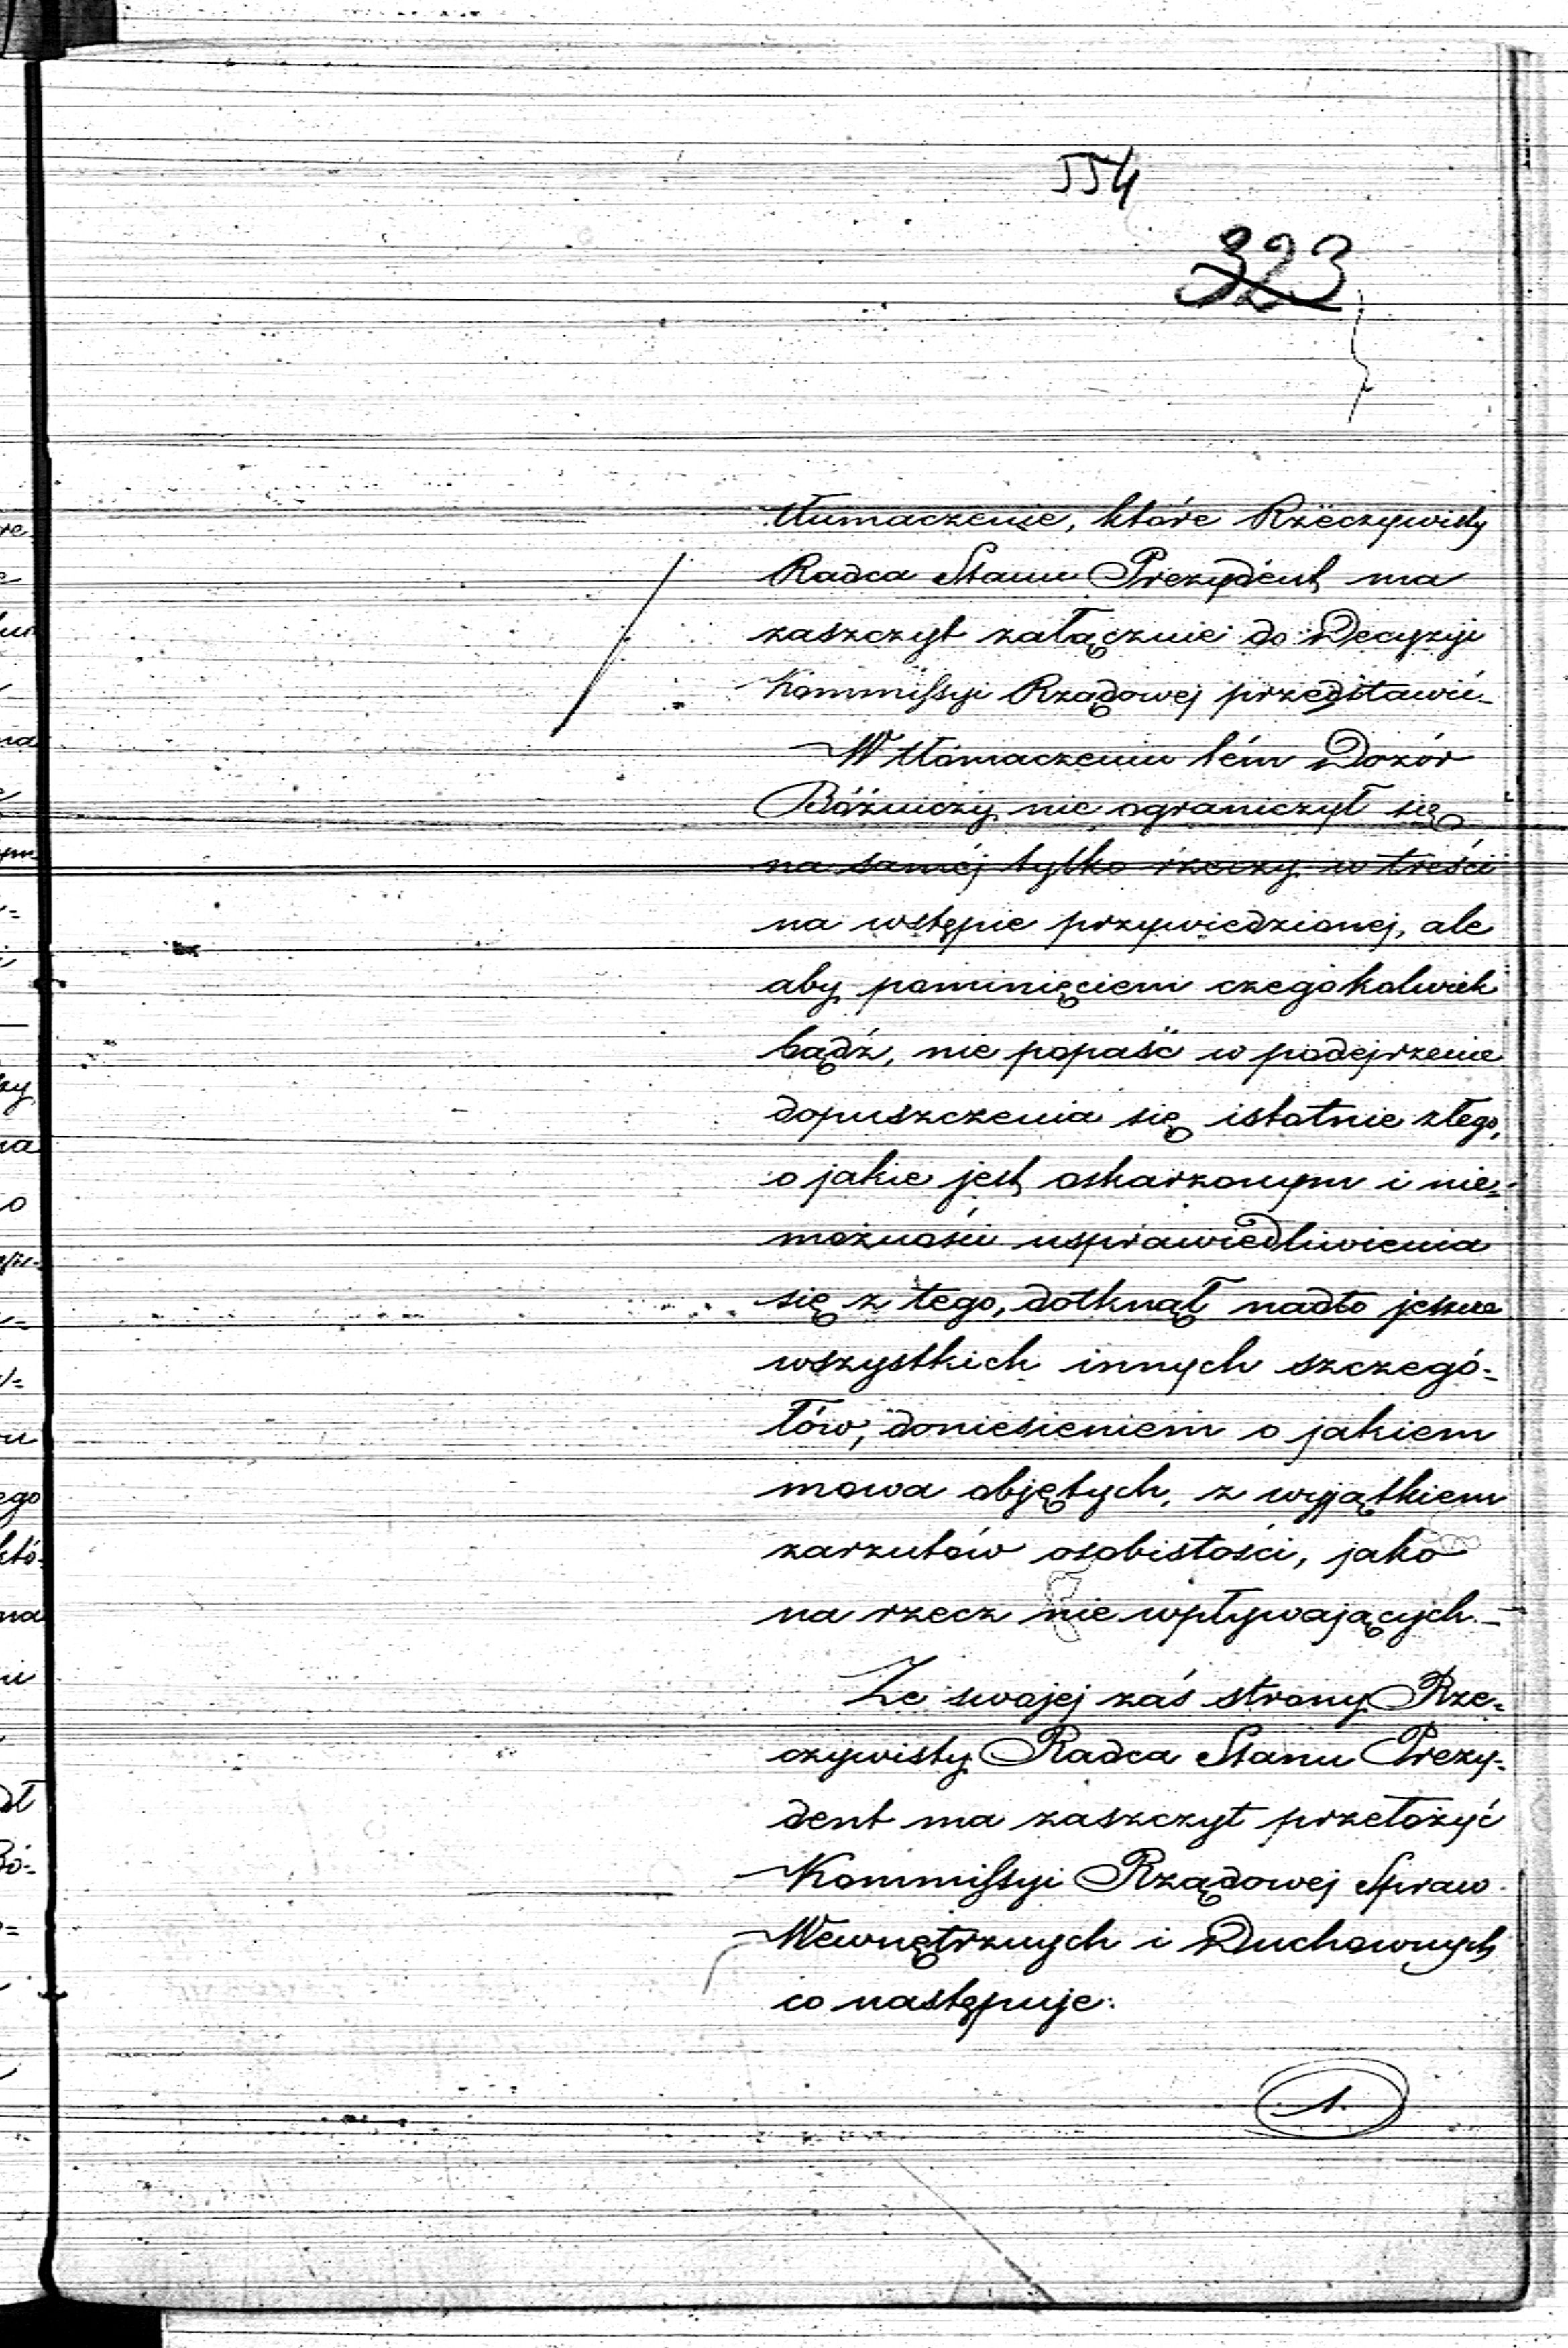 554
323
tłumaczenie, które Rzeczywisty
Radca Stanu Prezydent ma
zaszczyt załącznie do Decyzyi
Kommissyi Rządowej przedstawić_
W tłómaczeniu tém Dozór
Bóżniczy nie ograniczył się
na samej tylko rzeczy w treści
na wstępie przywiedzionej, ale
aby pominięciem czegokolwiek
bądź, nie popaść w podejrzenie
dopuszczenia się istotnie złego,
o jakie jest oskarzonym i nie=
możności usprawiedliwienia
się z tego, dotknął nadto jeszcze
wszystkich innych szczegó=
łów, doniesieniem o jakiem
mowa objętych, z wyjątkiem
zarzutów osobistości, jako
na rzecz nie wpływających._
Ze swojej zaś strony Rze=
czywisty Radca Stanu Prezy=
dent ma zaszczyt przełożyć
Kommissyi Rządowej Spraw
Wewnętrznych i Duchownych
co następuje:
1.